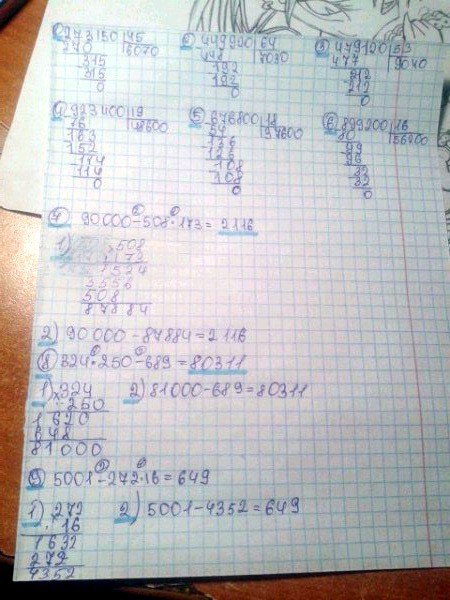 ① 273150|45 ② 449920|64 ③ 479120|53
270 |6070 448 |7030 477 |9040
315 192 212
315 192 212
0 0 0
④ 923400|19 ⑤ 676800|18 ⑥ 899200|16
76 |48600 54 |37600 80 |56200
163 136 99
152 126 96
114 108 32
114 108 32
0 0 0
⑦ 90000-508·173=2116
1) 508
173
1524
3556
508
87884
2) 90000-87884=2116
⑧ 324·250-689=80311
1) ×324 2) 81000-689=80311
250
1620
648
81000
⑨ 5001-272·16=649
1) ×272 2) 5001-4352=649
16
1632
272
4352